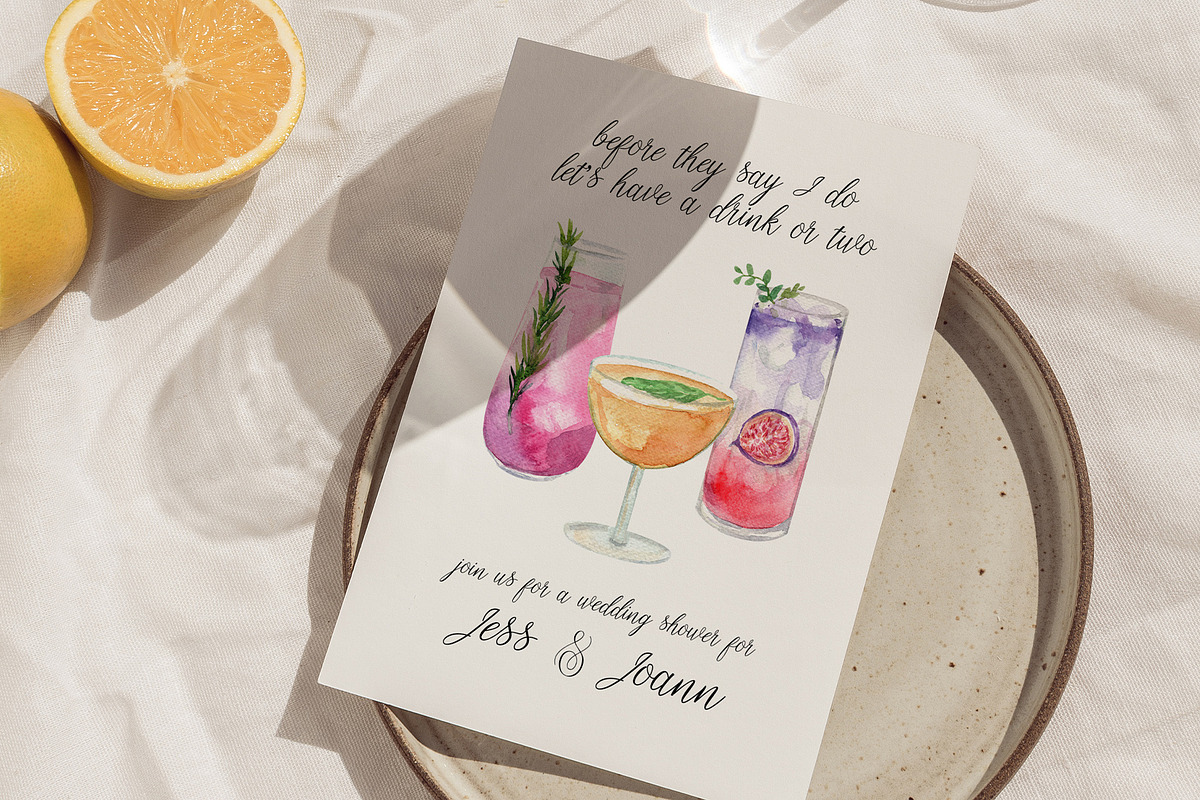 before they say I do
let's have a drink or two
join us for a wedding shower for
Jess & Joann